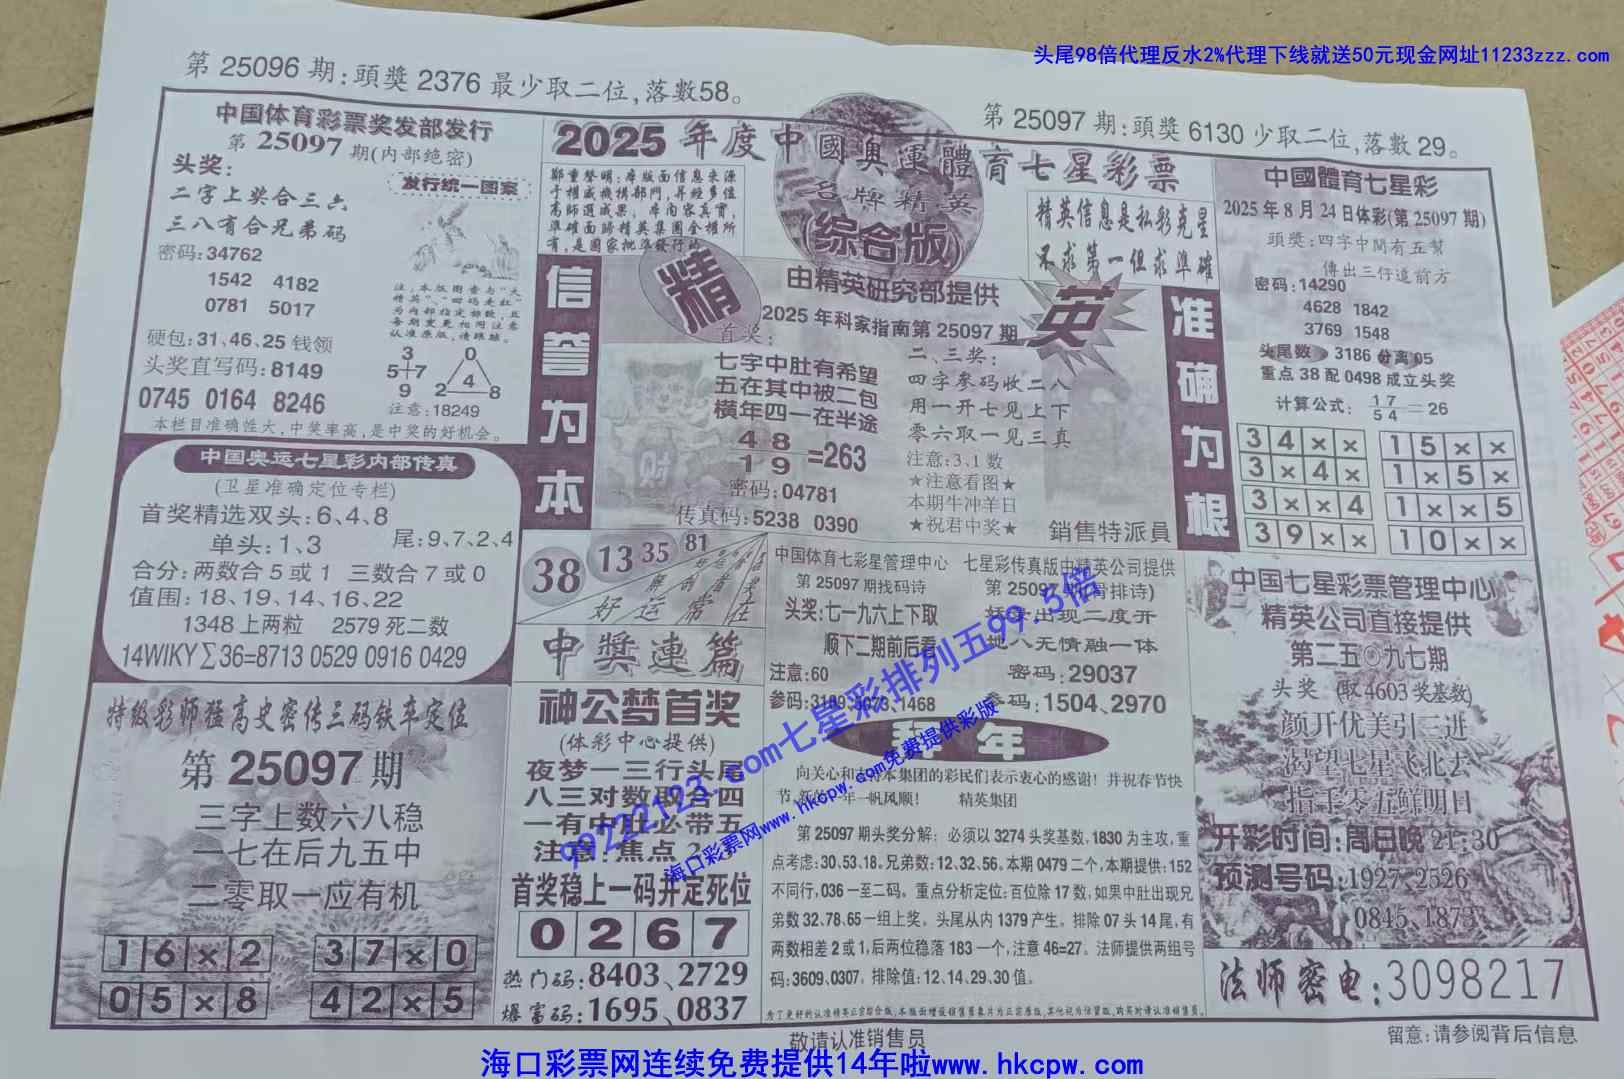 头尾98倍代理反水2%代理下线就送50元现金网址11233zzz.com
第 25096 期:頭獎 2376 最少取二位,落數58。
第 25097 期:頭獎 6130 少取二位,落數 29。
中国体育彩票奖发部发行
第 25097 期(内部绝密)
头奖:
二字上奖合三六
三八有合兄弟码
密码:34762
1542 4182
0781 5017
硬包:31、46、25 钱领
头奖直写码:8149
0745 0164 8246
发行统一图案
3
5+7
9
0
4
2 8
注意:18249
本栏目准确性大,中奖率高,是中奖的好机会。
中国奥运七星彩内部传真
(卫星准确定位专栏)
首奖精选双头:6、4、8
单头:1、3 尾:9、7、2、4
合分:两数合 5 或 1 三数合 7 或 0
值围:18、19、14、16、22
1348 上两粒 2579 死二数
14WIKY∑36=8713 0529 0916 0429
特级彩师猛高史密传三码铁车定位
第 25097 期
三字上数六八稳
一七在后九五中
二零取一应有机
1 6 × 2 3 7 × 0
0 5 × 8 4 2 × 5
2025 年度中國奥運體育七星彩票
名牌精英
(综合版)
精英信息是私彩克星
不求第一但求準確
信誉为本
精
英
由精英研究部提供
2025 年科家指南第 25097 期
首奖:
七字中肚有希望
五在其中被二包
横年四一在半途
4 8
1 9
=263
密码:04781
传真码:5238 0390
二、三奖:
四字参码收二八
用一开七见上下
零六取一见三真
注意:3、1 数
★注意看图★
本期牛冲羊日
★祝君中奖★
銷售特派員
准确为根
38 13 35 81
好运常在
中獎連篇
神公梦首奖
(体彩中心提供)
夜梦一三行头尾
八三对数取合四
一有中肚必带五
注意:焦点
首奖稳上一码并定死位
0 2 6 7
热门码:8403、2729
爆富码:1695、0837
中国体育七彩星管理中心
第 25097 期找码诗
头奖:七一九六上下取
顺下二期前后看
注意:60
参码:3189、3073、1468
七星彩传真版由精英公司提供
第 25097
出现二度开
人无情融一体
密码:29037
1504、2970
年
向关心和支持本集团的彩民们表示衷心的感谢!并祝春节快
年一帆风顺! 精英集团
第 25097 期头奖分解:必须以 3274 头奖基数,1830 为主攻,重
点考虑:30.53.18。兄弟数:12.32.56。本期 0479 二个,本期提供:152
不同行,036 一至二码。重点分析定位:百位除 17 数,如果中肚出现兄
弟数 32.78.65 一组上奖。头尾从内 1379 产生。排除 07 头 14 尾,有
两数相差 2 或 1,后两位稳落 183 一个,注意 46=27。法师提供两组号
码:3609.0307。排除值:12.14.29.30 值。
中國體育七星彩
2025 年 8 月 24 日体彩(第 25097 期)
頭獎:四字中間有五幫
傳出三仔道前方
密码:14290
4628 1842
3769 1548
头尾数 3186 分离 05
重点 38 配 0498 成立头奖
计算公式: 17/54=26
3 4 × × 1 5 × ×
3 × 4 × 1 × 5 ×
3 × × 4 1 × × 5
3 9 × × 1 0 × ×
中国七星彩票管理中心
精英公司直接提供
第二五〇九七期
头奖:(取 4603 奖基数)
颜开优美引三进
渴望七星飞北去
指手零五鲜明日
开彩时间:周日晚 21:30
预测号码:1927、2526
0845、1873
法师密电:3098217
99222123.com七星彩排列五99.5倍
海口彩票网www.hkcpw.com免费提供彩版
敬请认准销售员
留意:请参阅背后信息
海口彩票网连续免费提供14年啦www.hkcpw.com